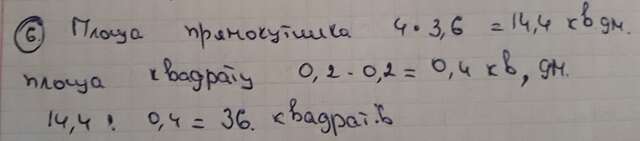 6 Площа прямокутника 4 • 3,6 = 14,4 кв дм.
площа квадрату 0,2 · 0,2 = 0,4 кв, дм.
14,4 : 0,4 = 36. квадратів